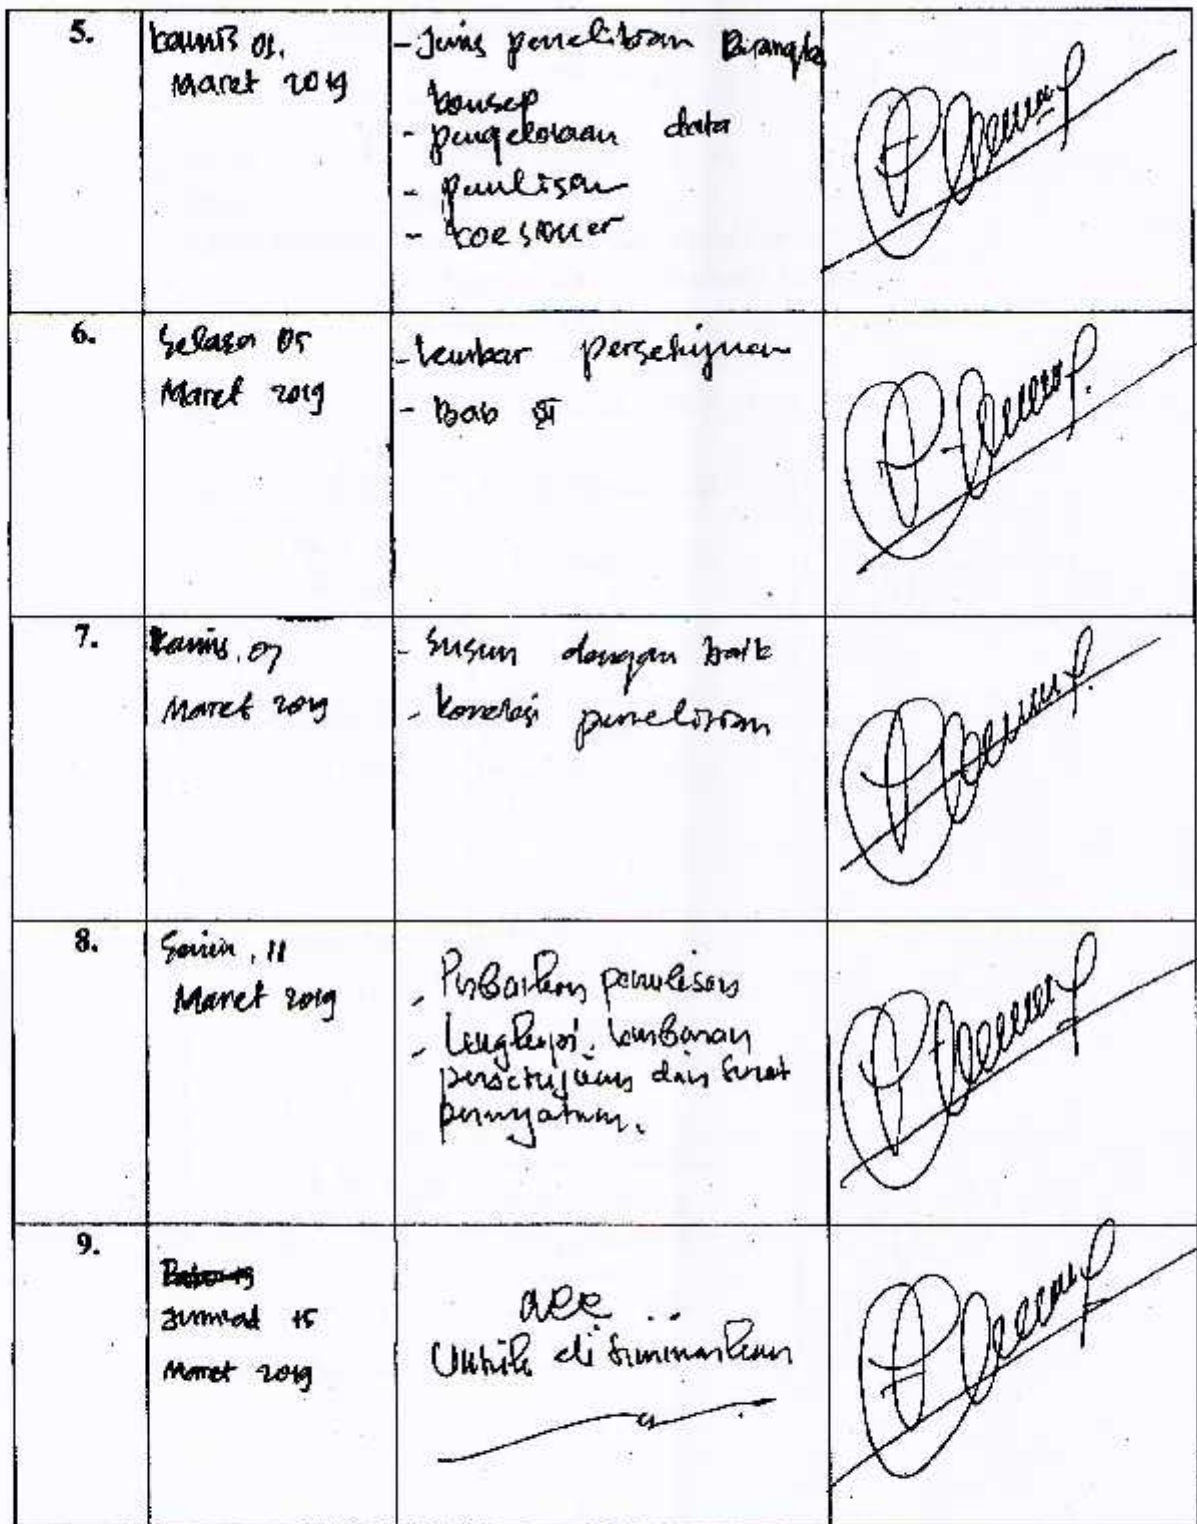 5.
Kamis 01.
Maret 2019
- Jenis penelitian Kerangka
konsep
- pengelolaan data
- penulisan
- koesioner
6.
Selasa 05
Maret 2019
- Lembar persetujuan
- Bab
7.
Kamis, 07
Maret 2019
- Susun dengan baik
- Korelasi penelitian
8.
Senin, 11
Maret 2019
- Perbaikan penulisan
- Lengkapi lembaran
persetujuan dan surat
pernyataan.
9.
Jumat 15
Maret 2019
acc
Untuk di seminarkan